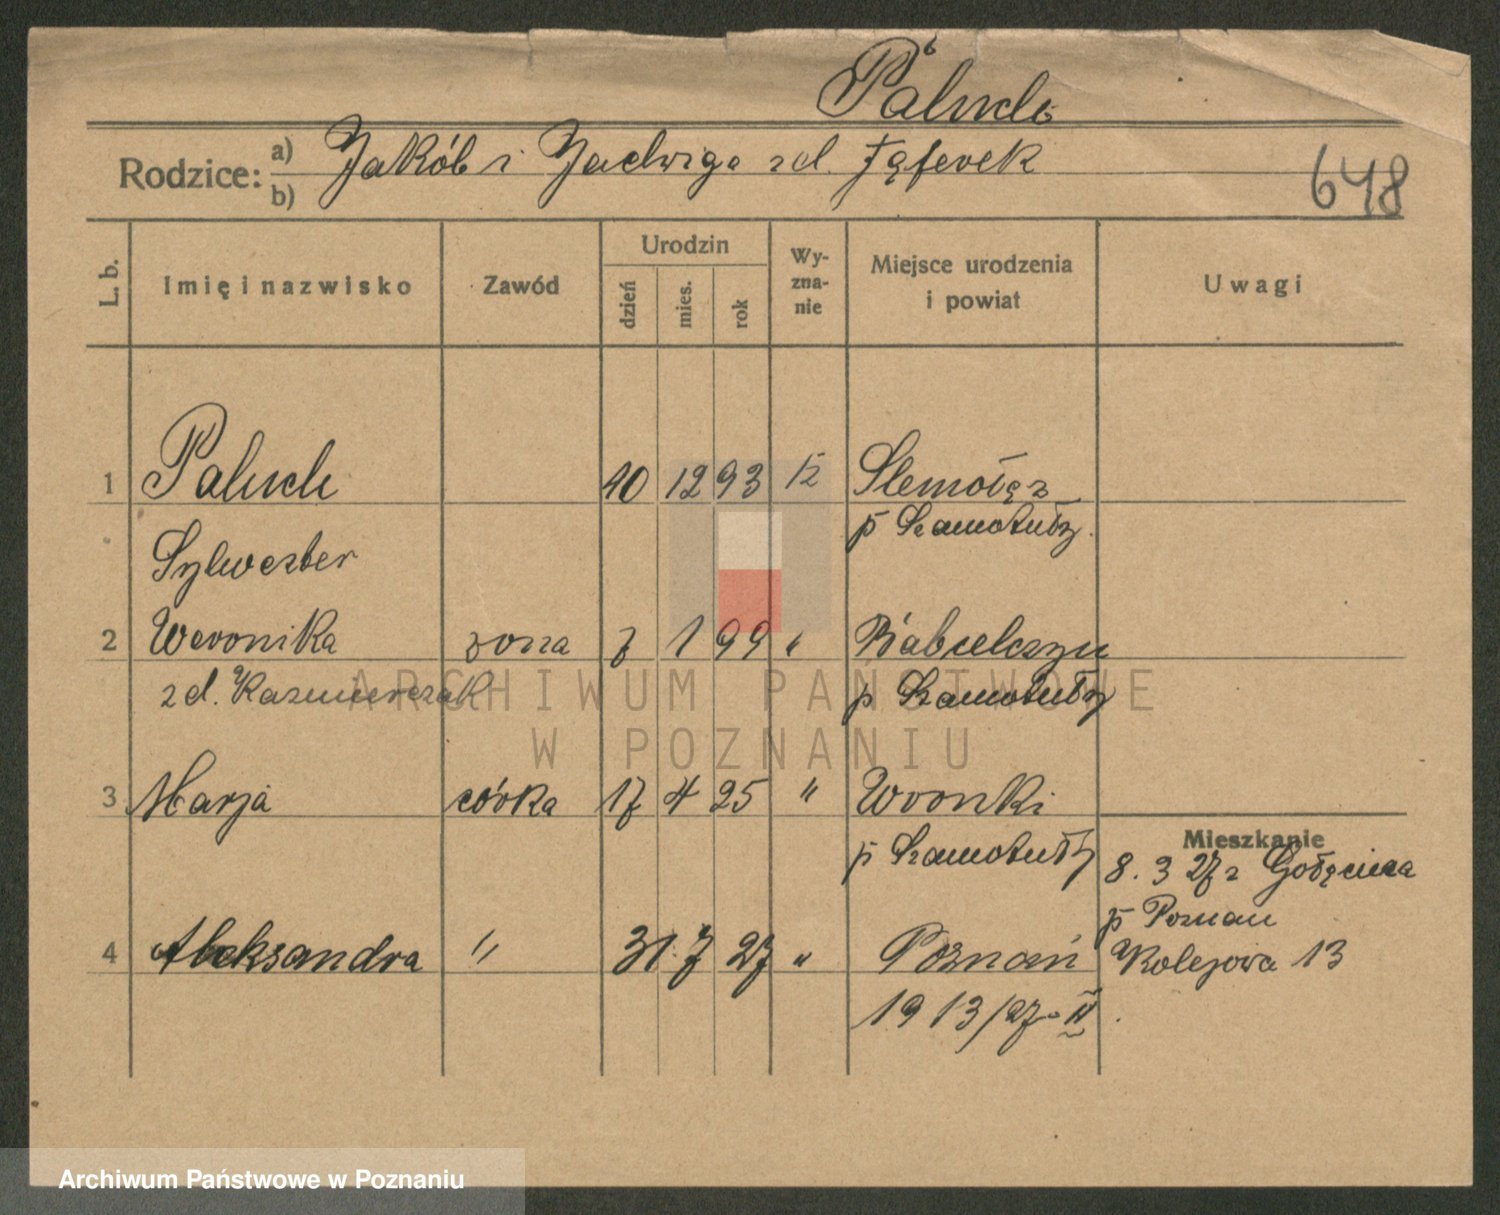 Paluch
Rodzice: a) b) Jakób i Jadwiga zd.
648
L. b. Imię i nazwisko Zawód Urodzin dzień mies. rok Wyznanie Miejsce urodzenia i powiat Uwagi
1 Paluch 10 12 93
p Szamotuły
Sylwester
2 Weronika żona 7 1 99 "
zd. Kazmierczak p Szamotuły
3 Marja córka 17 4 25 " Wronki
Mieszkanie
p Szamotuły 8. 3 27 z
p Poznań
4 Aleksandra " 31. 7 27 " Poznań Kolejowa 13
1913/27 - II
ARCHIWUM PAŃSTWOWE
W POZNANIU
Archiwum Państwowe w Poznaniu